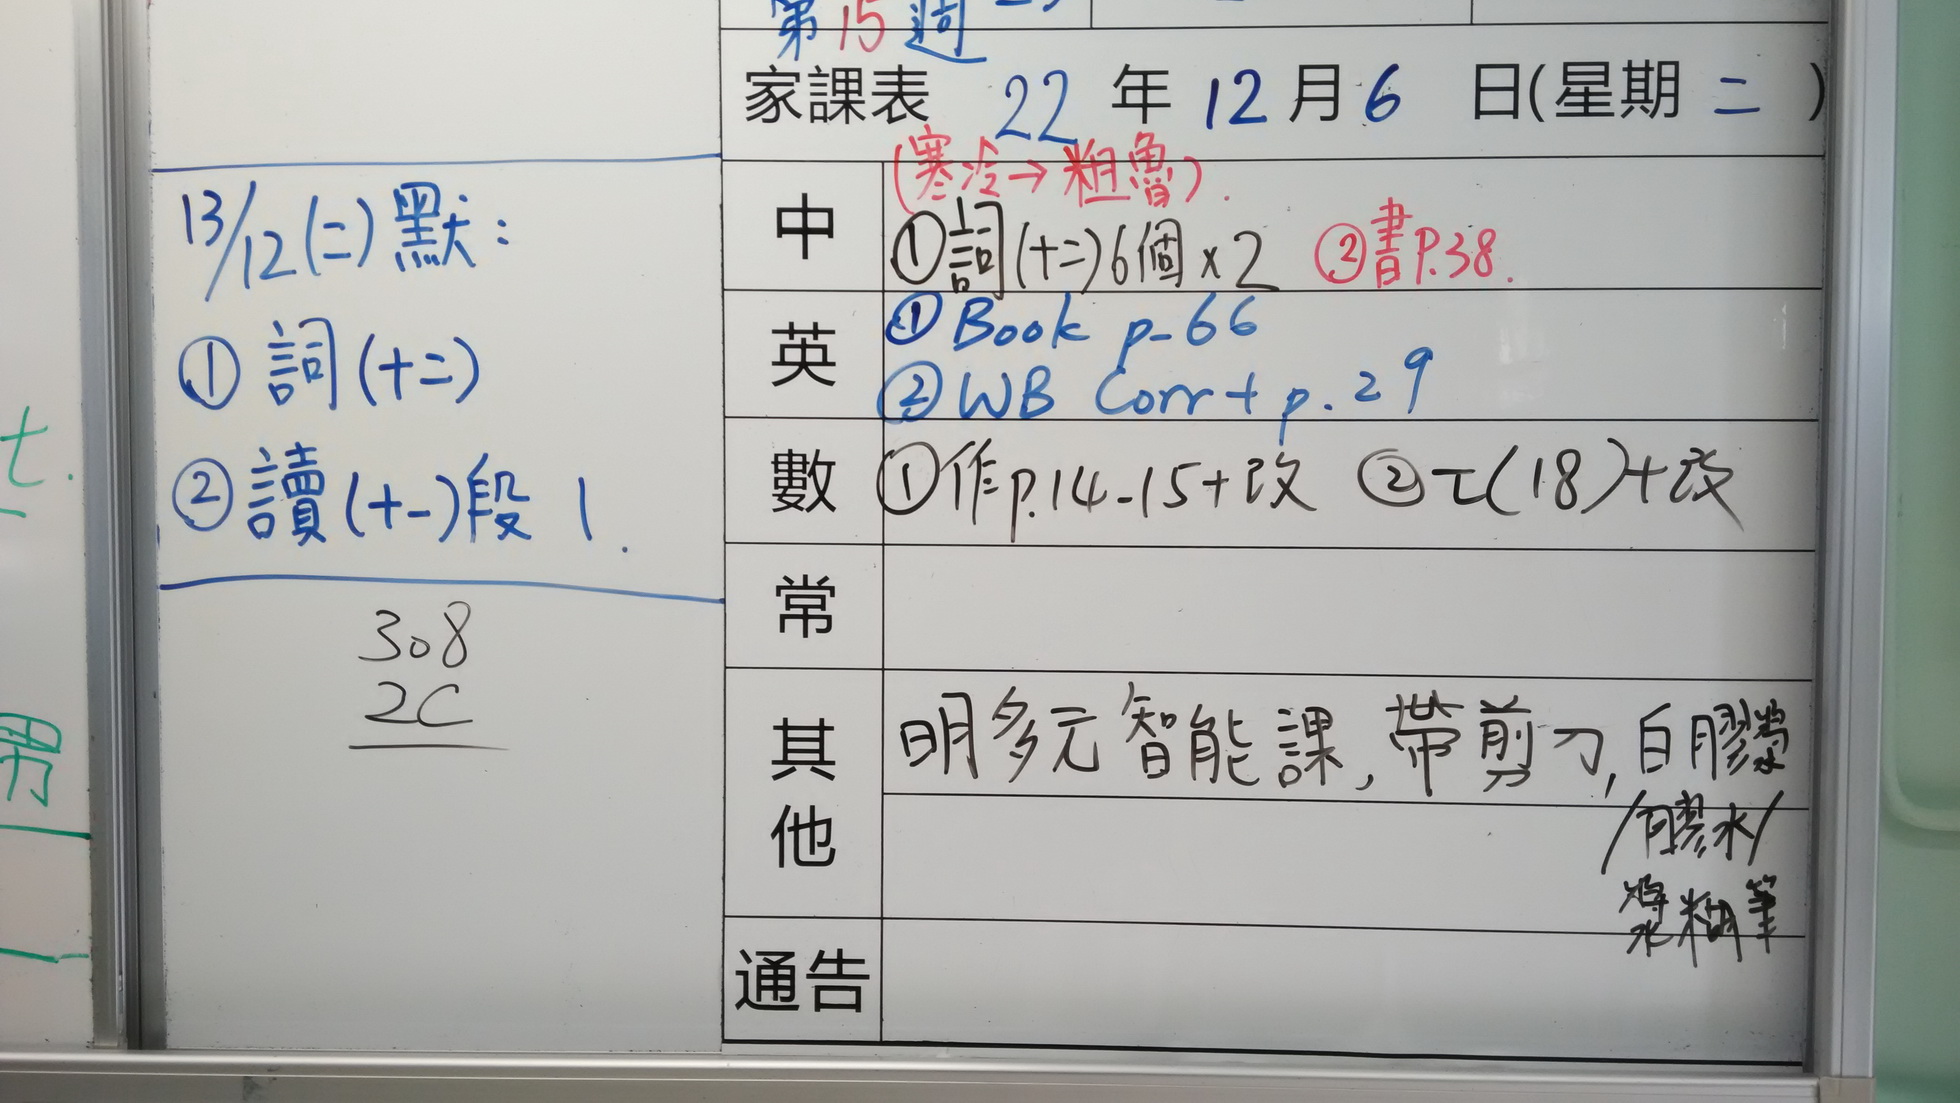 第15週
家課表 22年12月6日(星期二)
13/12(二)默:
①詞(十二)
②讀(十一)段1.
308
2C
中
(寒冷→粗魯).
①詞(十二)6個×2 ②書P.38.
英
①Book p-66
②WB Corr + p.29
數
①作p.14-15+改 ②工(18)+改
常
其他
明多元智能課,帶剪刀,白膠漿
/白膠水/
漿糊筆
通告
t.
男